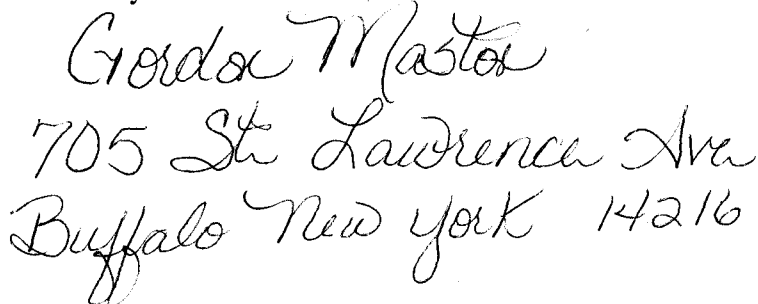 Gordon Maston
705 St. Lawrence Ave
Buffalo New York 14216